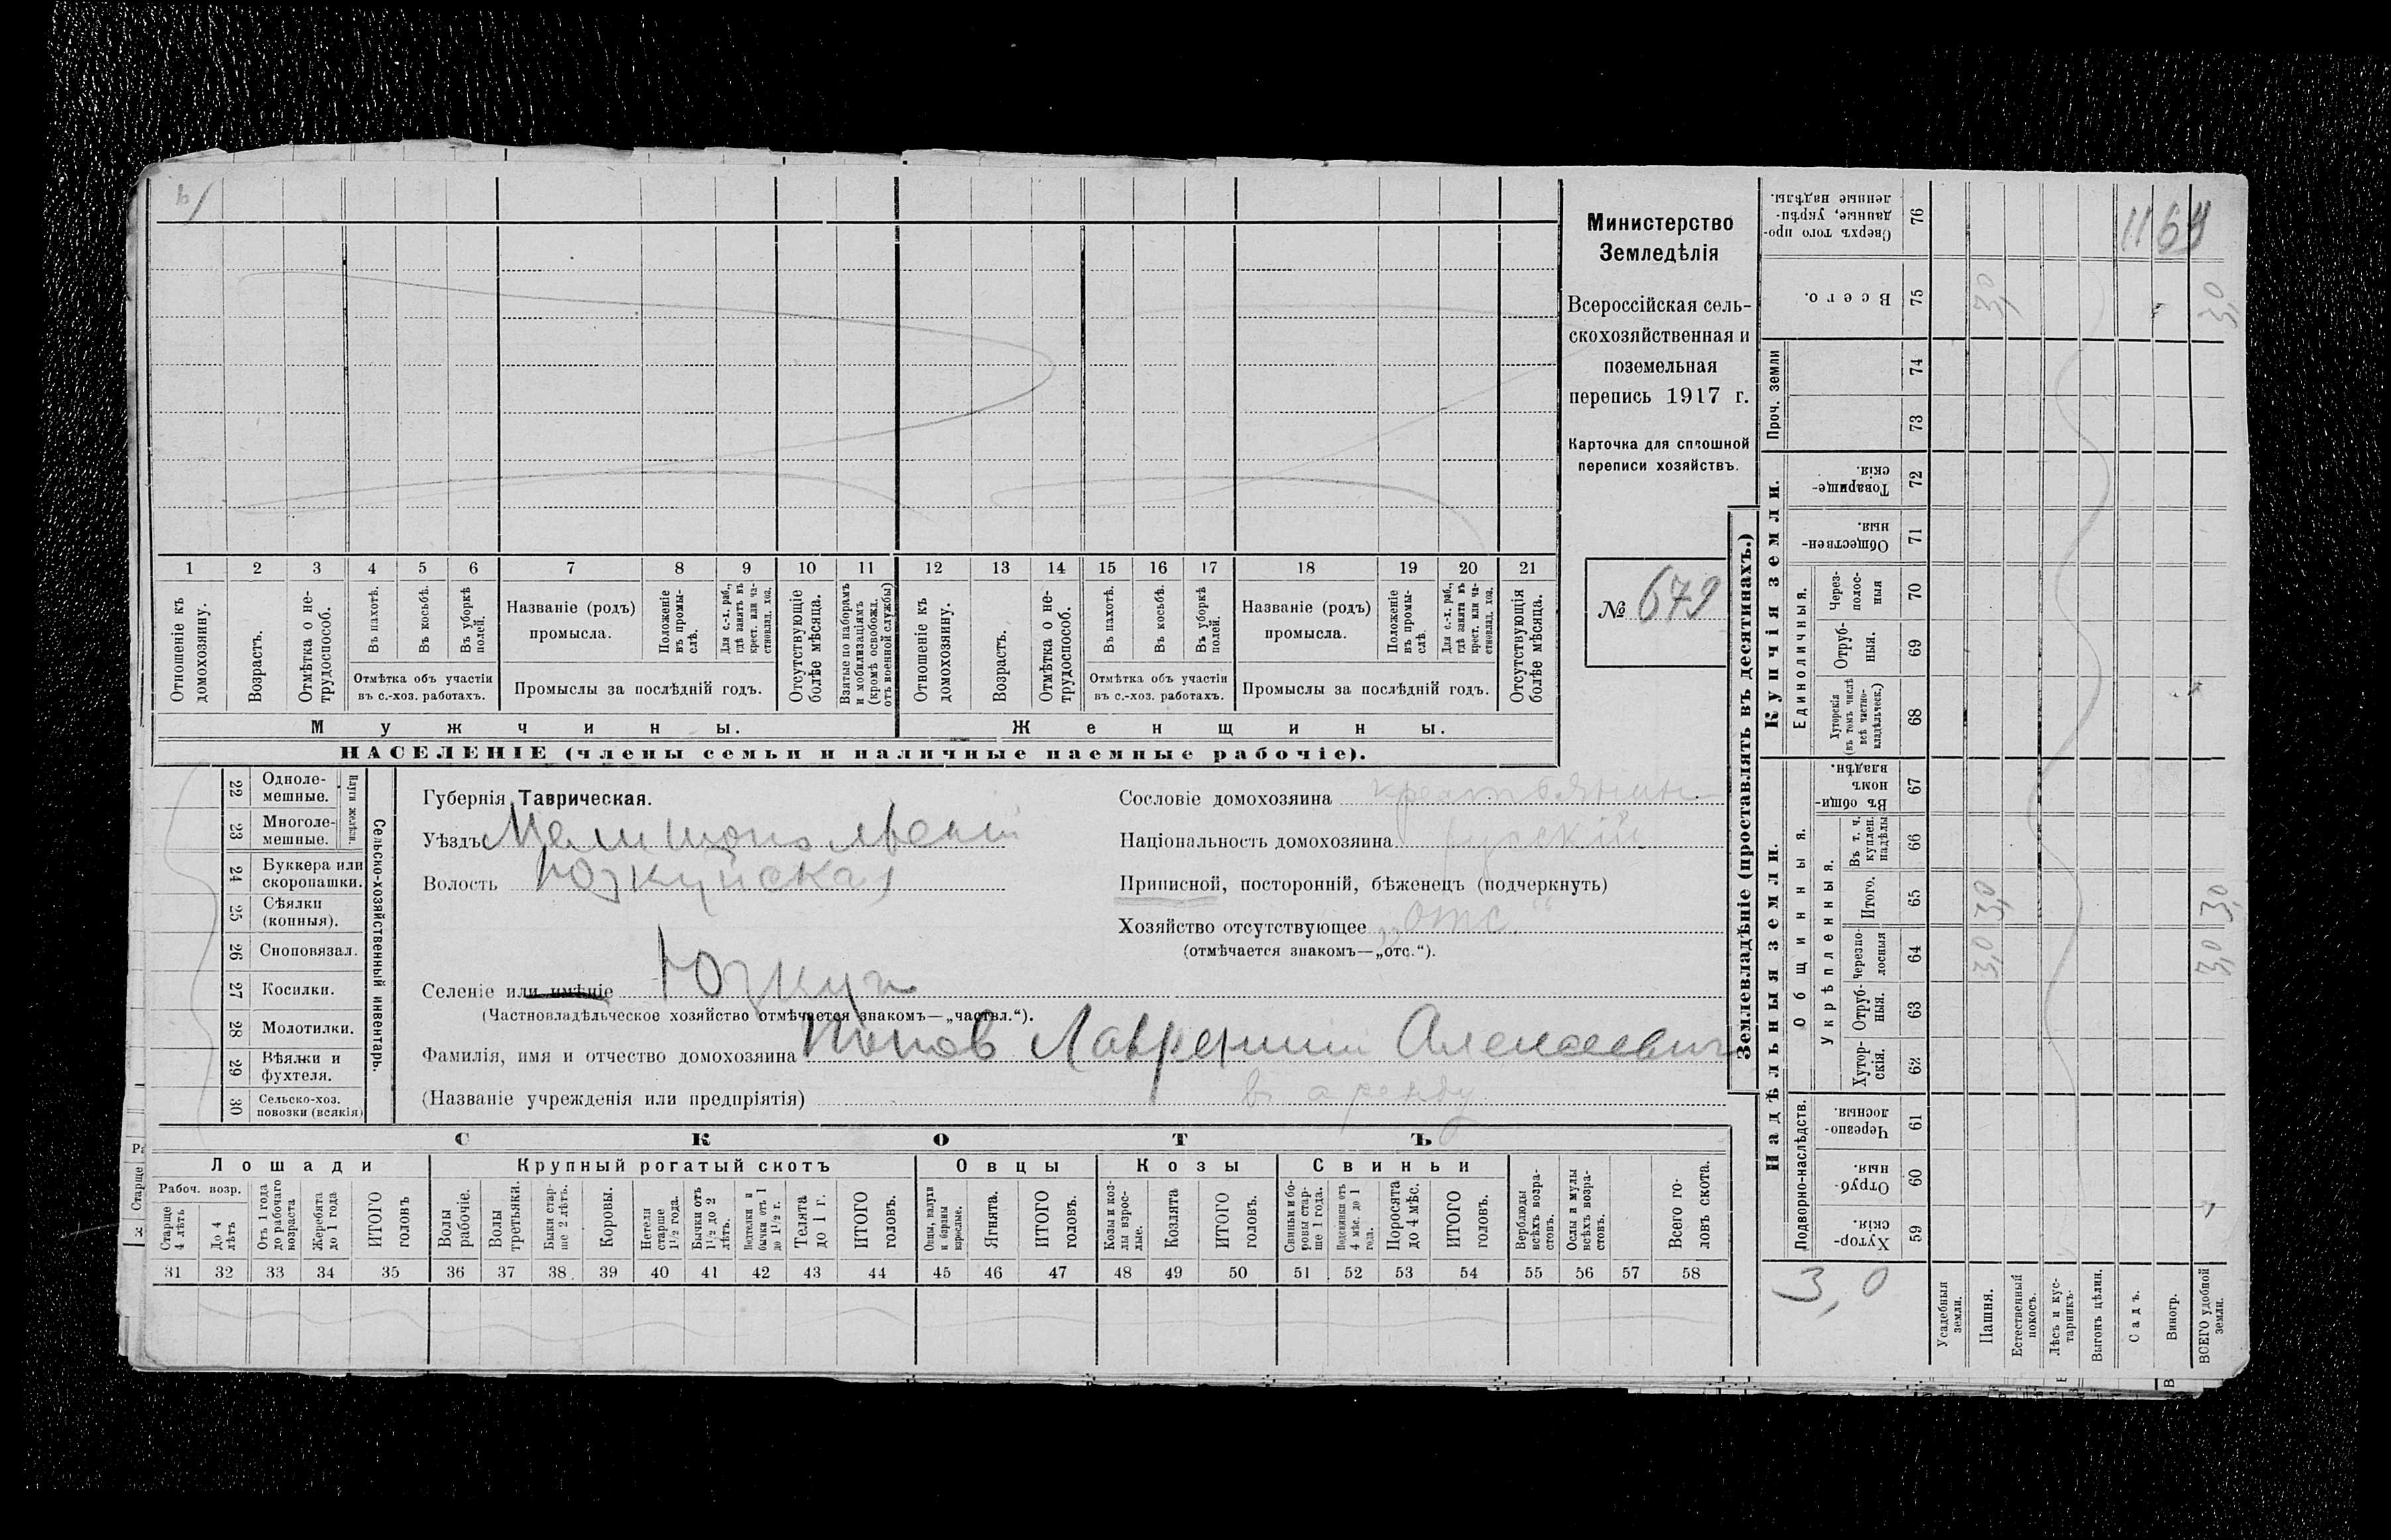 1169
Министерство
Земледѣлія
Всероссійская сель-
скохозяйственная и
поземельная
перепись 1917 г.
Карточка для сплошной
переписи хозяйствъ.
№ 679
1 2 3 4 5 6 7 8 9 10 11 12 13 14 15 16 17 18 19 20 21
Отношеніе къ домохозяину.
Возрастъ.
Отмѣтка о не-трудоспособ.
Въ пахотѣ.
Въ косьбѣ.
Въ уборкѣ полей.
Отмѣтка объ участіи
въ с.-хоз. работахъ.
Названіе (родъ)
промысла.
Положеніе въ промы-слѣ.
Для с.-х. раб., гдѣ занятъ въ крест. или ча-стновлад. хоз.
Промыслы за послѣдній годъ.
Отсутствующіе болѣе мѣсяца.
Взятые по наборамъ и мобилизаціямъ (кромѣ освобожд. отъ военной службы)
Отношеніе къ домохозяину.
Возрастъ.
Отмѣтка о не-трудоспособ.
Въ пахотѣ.
Въ косьбѣ.
Въ уборкѣ полей.
Отмѣтка объ участіи
въ с.-хоз. работахъ.
Названіе (родъ)
промысла.
Положеніе въ промы-слѣ.
Для с.-х. раб., гдѣ занята въ крест. или ча-стновлад. хоз.
Промыслы за послѣдній годъ.
Отсутствующія болѣе мѣсяца.
Мужчины. Женщины.
НАСЕЛЕНІЕ (члены семьи и наличные наемные рабочіе).
Сельско-хозяйственный инвентарь.
Плуги желѣзн.
22 Одноле-мешные.
23 Многоле-мешные.
24 Буккера или скоропашки.
25 Сѣялки (конныя).
26 Сноповязал.
27 Косилки.
28 Молотилки.
29 Вѣялки и фухтеля.
30 Сельско-хоз. повозки (всякія)
Губернія Таврическая.
Уѣздъ Мелитопольскій
Волость Юзкуйская
Селеніе или имѣніе Юзкуи
(Частновладѣльческое хозяйство отмѣчается знакомъ—„частвл.“).
Фамилія, имя и отчество домохозяина Попов Лаврентий Алексеевич
(Названіе учрежденія или предпріятія) в аренду
Сословіе домохозяина крестьянин
Національность домохозяина русскій
Приписной, посторонній, бѣженецъ (подчеркнуть)
Хозяйство отсутствующее „отс“
(отмѣчается знакомъ—„отс.“).
СКОТЪ
Лошади Крупный рогатый скотъ Овцы Козы Свиньи
Рабоч. возр.
Старше 4 лѣтъ
До 4 лѣтъ
Отъ 1 года до рабочаго возраста
Жеребята до 1 года
ИТОГО головъ
Волы рабочіе.
Волы третьяки.
Быки стар-ше 2 лѣтъ.
Коровы.
Нетели старше 1½ года.
Бычки отъ 1½ до 2 лѣтъ.
Нетелки и бычки отъ 1 до 1½ г.
Телята до 1 г.
ИТОГО головъ.
Овцы, валухи и бараны взрослые.
Ягнята.
ИТОГО головъ.
Козы и коз-лы взрос-лые.
Козлята
ИТОГО головъ.
Свиньи и бо-ровы стар-ше 1 года.
Подсвинки отъ 4 мѣс. до 1 года.
Поросята до 4 мѣс.
ИТОГО головъ.
Верблюды всѣхъ возра-стовъ.
Ослы и мулы всѣхъ возра-стовъ.
Всего го-ловъ скота.
31 32 33 34 35 36 37 38 39 40 41 42 43 44 45 46 47 48 49 50 51 52 53 54 55 56 57 58
Землевладѣніе (проставлять въ десятинахъ.)
Купчія земли.
Проч. земли
Единоличныя.
Надѣльныя земли.
Общинныя.
Укрѣпленныя.
Подворно-наслѣдств.
Сверхъ того про-данные, укрѣп-ленные надѣлы. 76
Всего. 75 3,0 3,0
74
73
Товарище-скія. 72
Обществен-ныя. 71
Через-полос-ныя 70
Отруб-ныя. 69
Хуторскія (въ томъ числѣ всѣ частно-владѣльческ.) 68
Въ общи-номъ владѣн. 67
Въ т. ч. куплен. надѣлы 66
Итого. 65 3,0 3,0
Черезпо-лосныя 64 3,0 3,0
Отруб-ныя. 63
Хутор-скія. 62
Черезпо-лосныя. 61
Отруб-ныя. 60
Хутор-скія. 59
3,0
Усадебныя земли.
Пашня.
Естественный покосъ.
Лѣсъ и кус-тарникъ.
Выгонъ цѣлин.
Садъ.
Виногр.
ВСЕГО удобной земли.